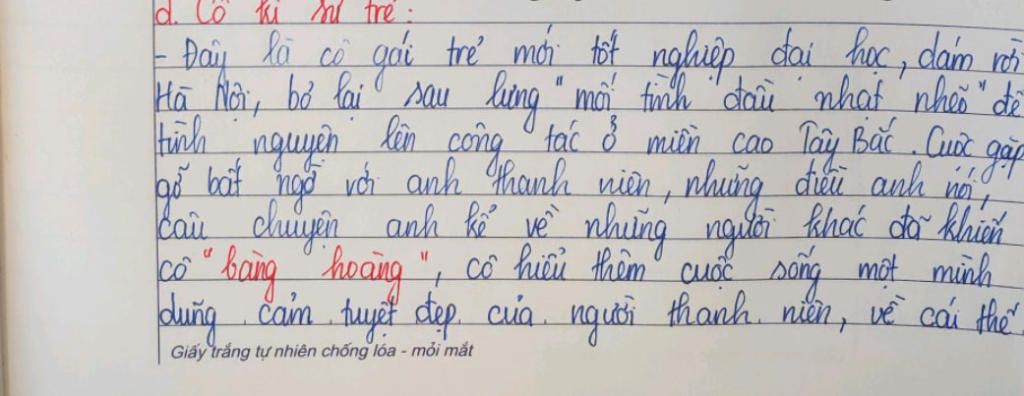 d. Cô kĩ sư trẻ:
- Đây là cô gái trẻ mới tốt nghiệp đại học, dám rời
Hà Nội, bỏ lại sau lưng "mối tình đầu nhạt nhẽo" để
tình nguyện lên công tác ở miền cao Tây Bắc. Cuộc gặp
gỡ bất ngờ với anh thanh niên, những điều anh nói,
câu chuyện anh kể về những người khác đã khiến
cô "bàng hoàng", cô hiểu thêm cuộc sống một mình
dũng cảm tuyệt đẹp của người thanh niên, về cái thế
Giấy trắng tự nhiên chống lóa - mỏi mắt